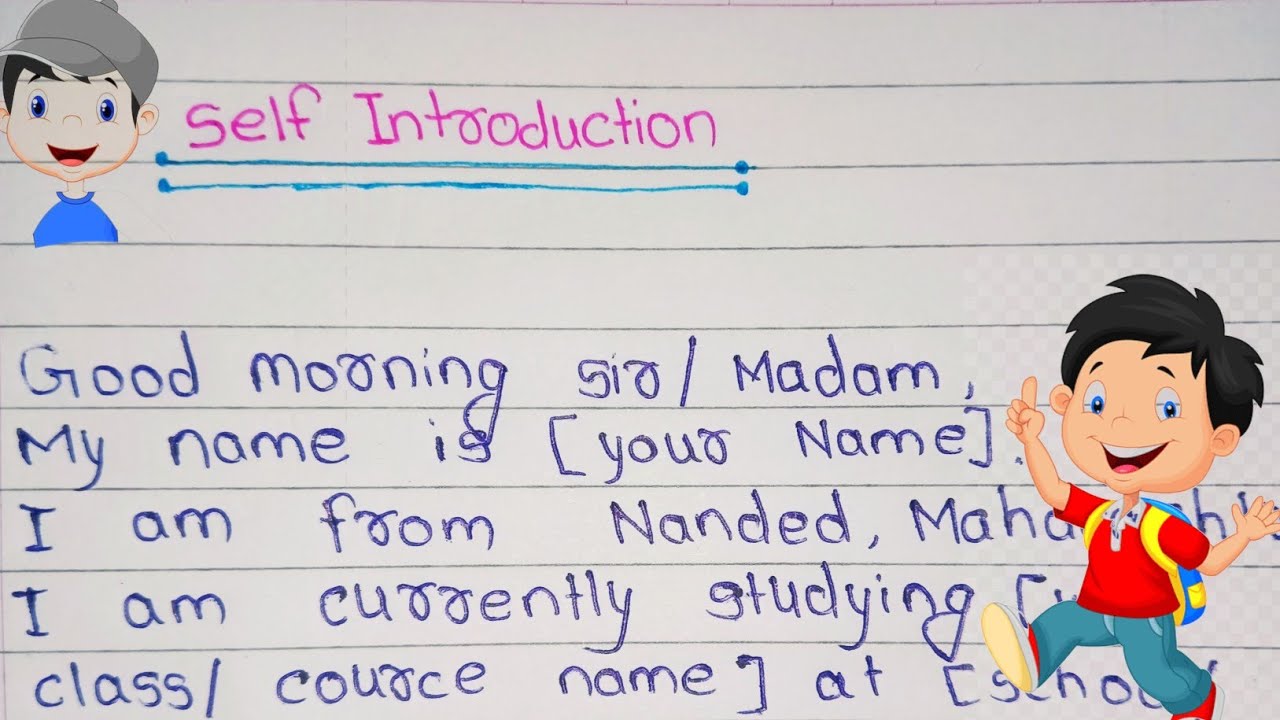 Self Introduction
Good morning sir/ Madam,
My name is [your Name].
I am from Nanded,
I am currently studying [
class/ cource name] at [